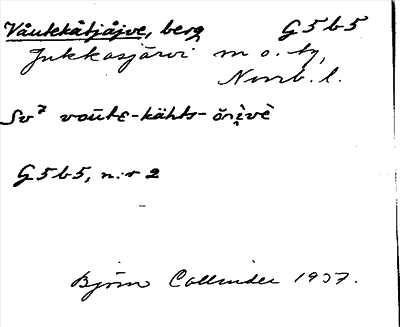 Våutekåtjåjve, berg G 5 b 5
Jukkasjärvi m o. tg,
Norrb. l.
Sv⁷ voūtᴇ-kähts-
G 5 b 5, n:r 2
Björn Collinder 1937.